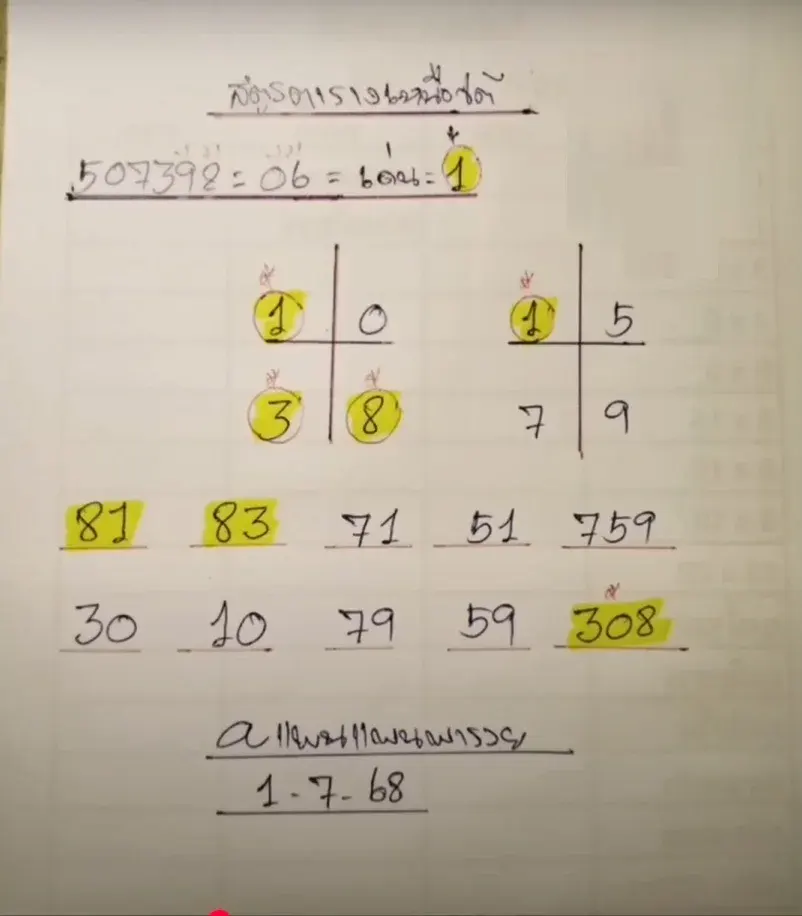 สูตรตารางเหนือชตี
507392 = 06 = เด่น = 1
1 0 1 5
3 8 7 9
81 83 71 51 759
30 10 79 59 308
อ แพนแพนพารวย
1-7-68